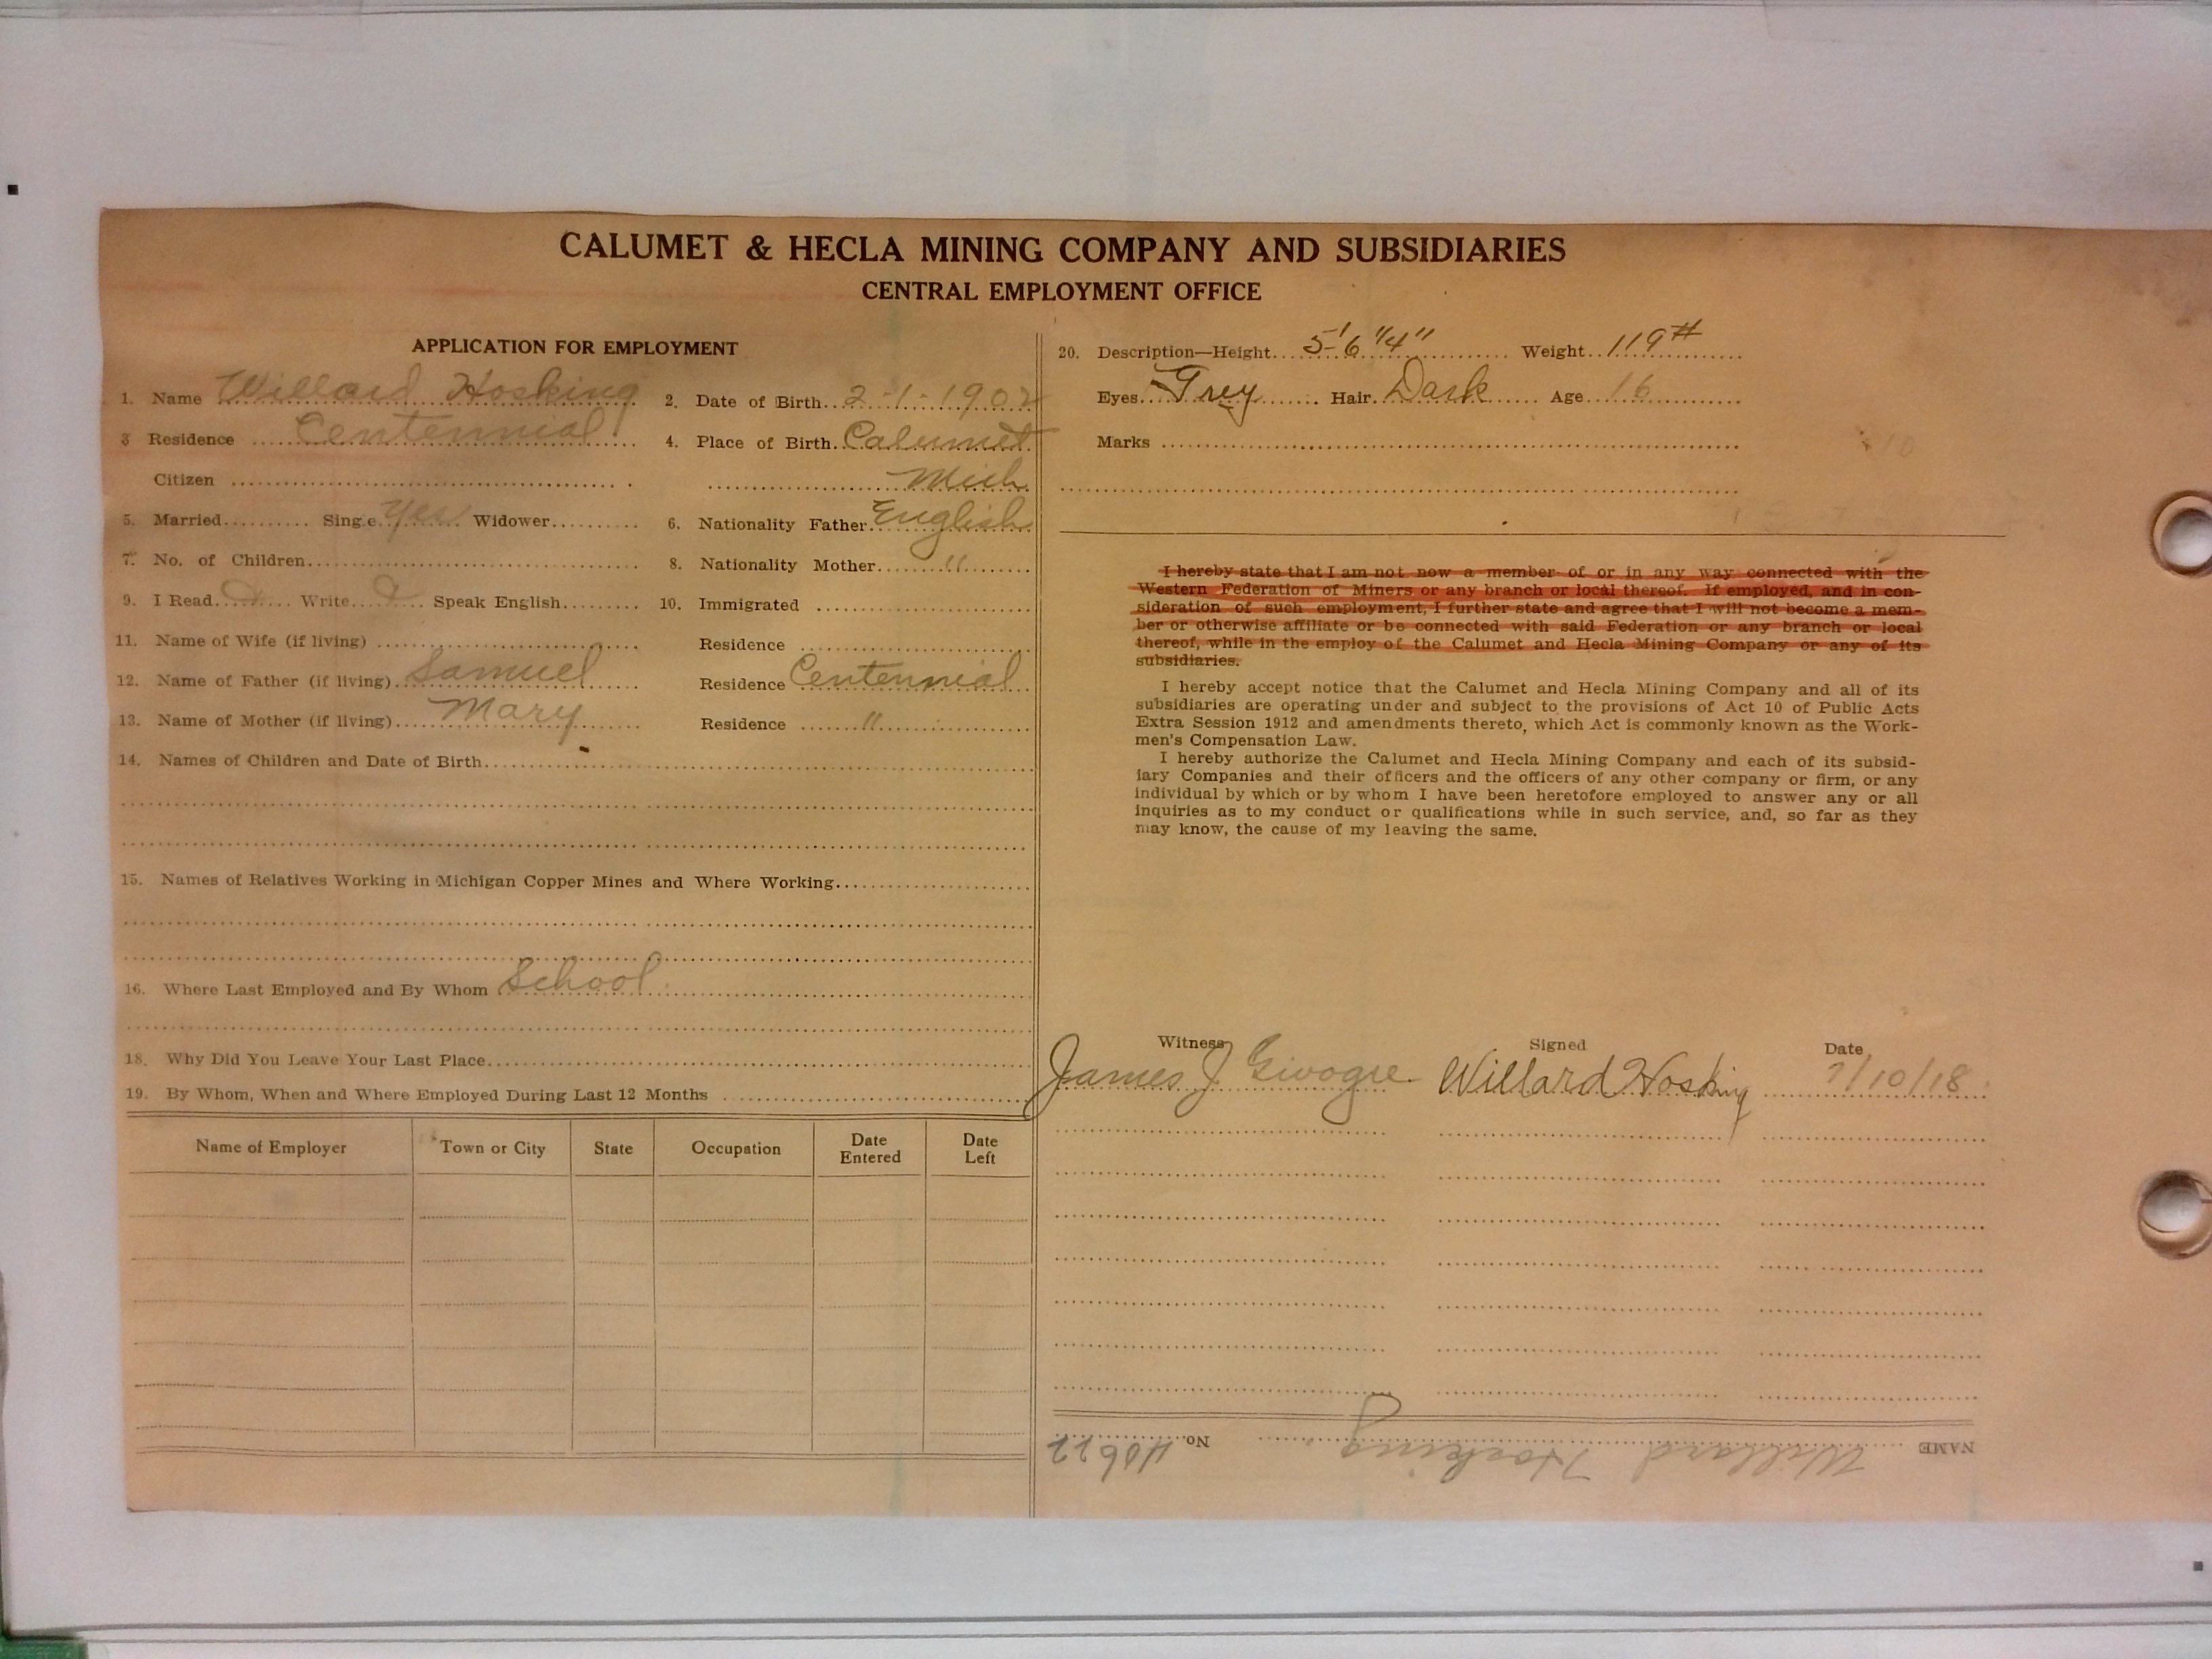 CALUMET & HECLA MINING COMPANY AND SUBSIDIARIES
CENTRAL EMPLOYMENT OFFICE
APPLICATION FOR EMPLOYMENT
1. Name Willard Hosking 2. Date of Birth 2-1-1902
3 Residence Centennial 4. Place of Birth Calumet
Citizen Mich
5. Married Single Yes Widower 6. Nationality Father English
7. No. of Children 8. Nationality Mother "
9. I Read Write Speak English 10. Immigrated
11. Name of Wife (if living) Residence
12. Name of Father (if living) Samuel Residence Centennial
13. Name of Mother (if living) Mary Residence "
14. Names of Children and Date of Birth
15. Names of Relatives Working in Michigan Copper Mines and Where Working
16. Where Last Employed and By Whom School
18. Why Did You Leave Your Last Place
19. By Whom, When and Where Employed During Last 12 Months
Name of Employer Town or City State Occupation Date Entered Date Left
20. Description—Height 5'6 1/4" Weight 119#
Eyes Grey Hair Dark Age 16
Marks
I hereby state that I am not now a member of or in any way connected with the
Western Federation of Miners or any branch or local thereof. If employed, and in con-
sideration of such employment, I further state and agree that I will not become a mem-
ber or otherwise affiliate or be connected with said Federation or any branch or local
thereof, while in the employ of the Calumet and Hecla Mining Company or any of its
subsidiaries.
I hereby accept notice that the Calumet and Hecla Mining Company and all of its
subsidiaries are operating under and subject to the provisions of Act 10 of Public Acts
Extra Session 1912 and amendments thereto, which Act is commonly known as the Work-
men's Compensation Law.
I hereby authorize the Calumet and Hecla Mining Company and each of its subsid-
iary Companies and their officers and the officers of any other company or firm, or any
individual by which or by whom I have been heretofore employed to answer any or all
inquiries as to my conduct or qualifications while in such service, and, so far as they
may know, the cause of my leaving the same.
Witness Signed Date
James J Willard Hosking 7/10/18
NAME Willard Hosking No. 40622